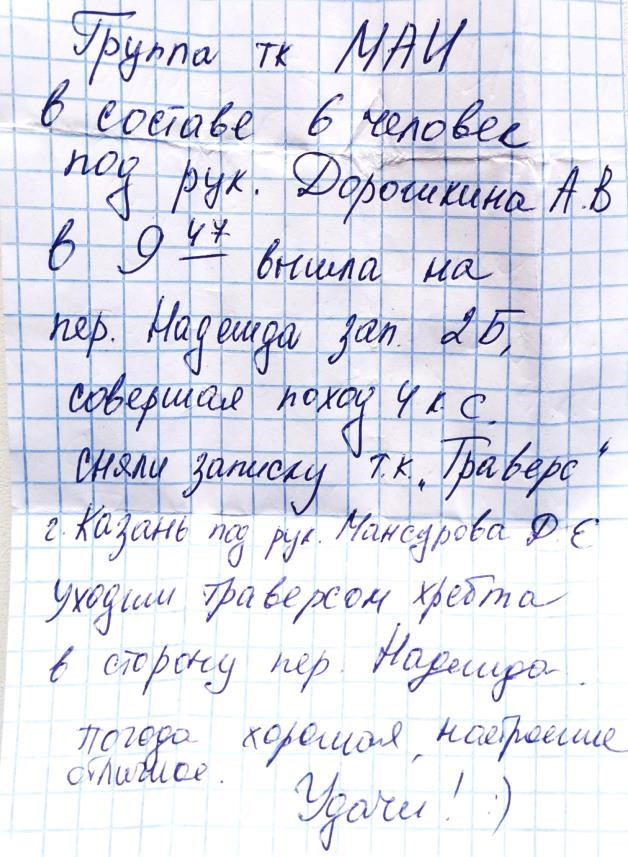 Группа тк МАИ
в составе 6 человек
под рук. Дорошкина А.В
в 9 47 вышла на
пер. Надежда зап. 2Б,
совершая поход 4 к с.
сняли записку т.к. „Траверс"
г. Казань под рук. Мансурова Д Е
уходим траверсом хребта
в сторону пер. Надежда.
погода хорошая, настроение
отличное.
Удачи! :)